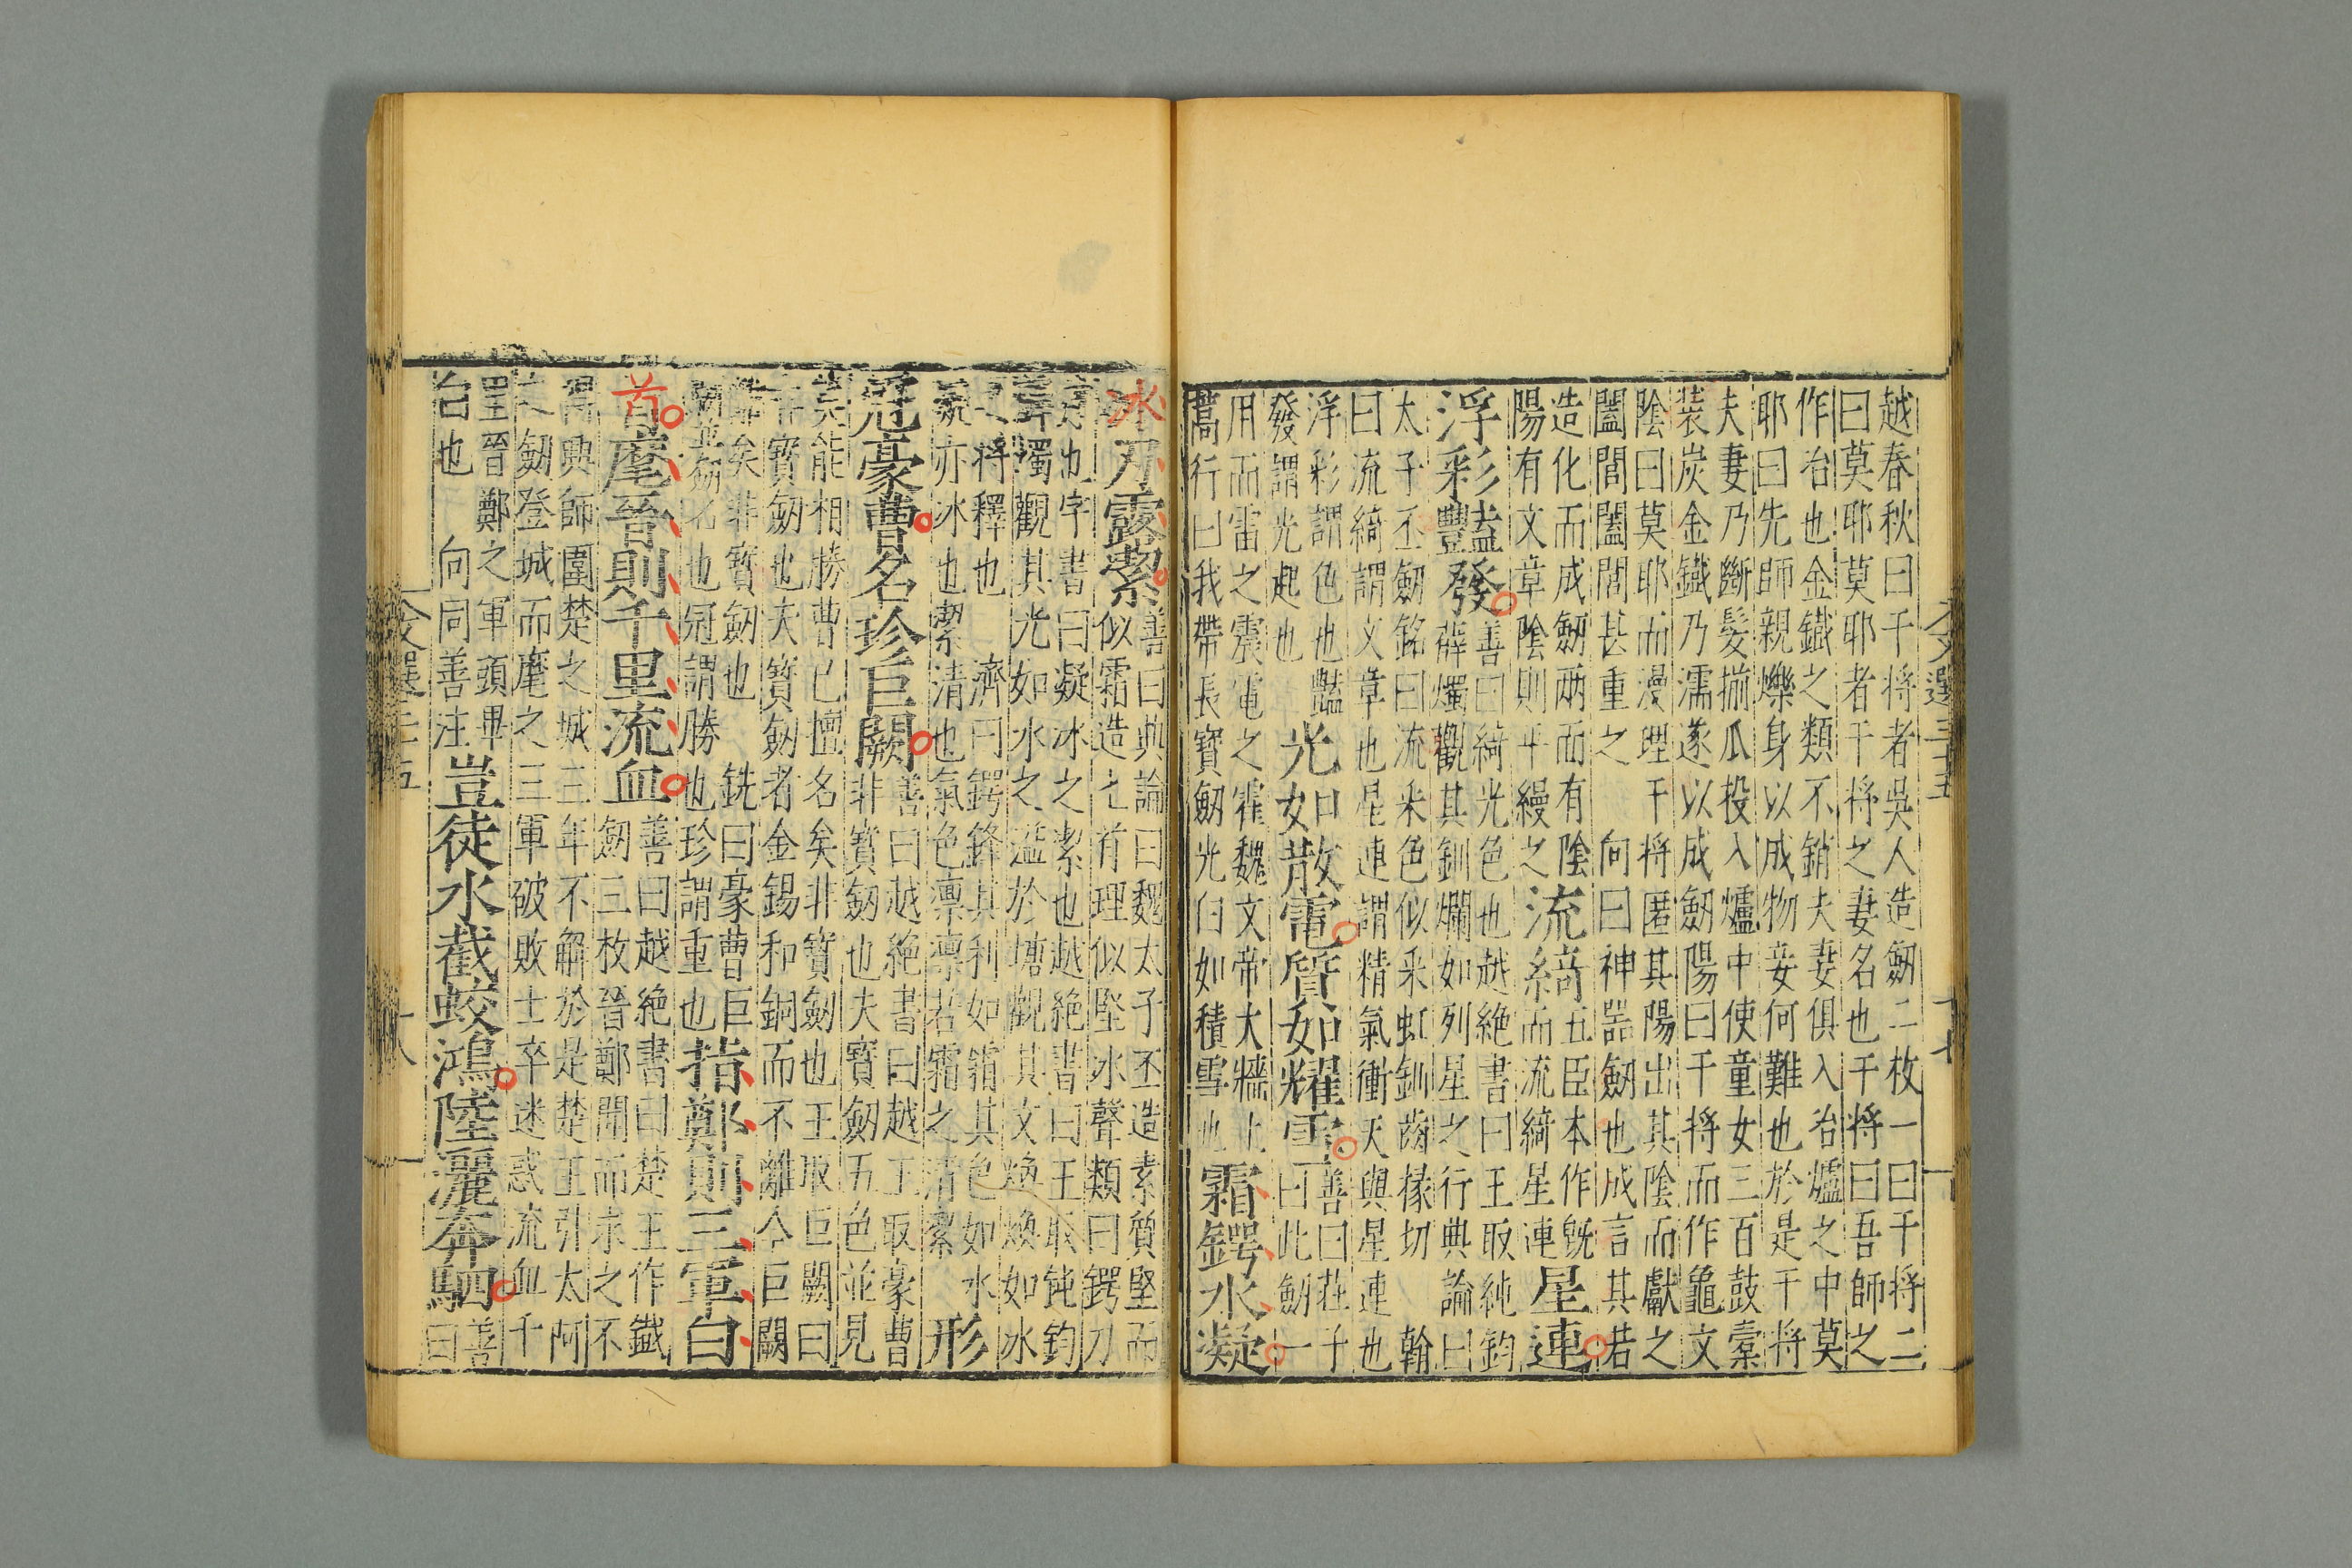 文選三十五 十七
越春秋曰干將者吳人造劔二枚一曰干將二
曰莫耶莫耶者干將之妻名也干將曰吾師之
作冶也金鐵之類不銷夫妻俱入冶爐之中莫
耶曰先師親爍身以成物妾何難也於是干將
夫妻乃斷髮揃爪投入爐中使童女三百鼓橐
装炭金鐵乃濡遂以成劔陽曰干將而作龜文
陰曰莫耶而漫理干將匿其陽出其陰而獻之
闔閭闔閭甚重之 向曰神器劔也成言其若
造化而成劔兩而有陰
陽有文章陰則平縵之
流綺
五臣本作旣
而流綺星連
星連
浮彩豔發
善曰綺光色也越絶書曰王取純鈞
薛燭觀其釽爛如列星之行典論曰
太子丕劔銘曰流采色似采虹釽齒掾切 翰
曰流綺謂文章也星連謂精氣衝天與星連也
浮彩謂色也豔
發謂光起也
光如散電質如耀雪
善曰莊子
曰此劔一
用而雷之震電之霍魏文帝大牆上
蒿行曰我帶長寶劔光白如積雪也
霜鍔水凝
冰刃露潔
善曰典論曰魏太子丕造素質堅而
似霜造匕首理似堅冰聲類曰鍔刀
刃也字書曰凝冰之潔也越絶書曰王取純鈞
薛燭觀其光如水之溢於塘觀其文煥煥如冰
之將釋也 濟曰鍔鋒其利如霜其色如水
凝亦冰也潔清也氣色凛凛若霜之清潔
形
冠豪曹名珍巨闕
善曰越絶書曰越王取豪曹
非寶劔也夫寶劔五色並見
莫能相勝曹已擅名矣非寶劔也王取巨闕曰
非寶劔也夫寶劔者金錫和銅而不離今巨闕
離矣非寶劔也 銑曰豪曹巨
闕並劔名也冠謂勝也珍謂重也
指鄭則三軍白
首麾晉則千里流血
善曰越絶書曰楚王作鐵
劔三枚晉鄭聞而求之不
得興師圍楚之城三年不解於是楚王引太阿
之劔登城而麾之三軍破敗士卒迷惑流血千
里晉鄭之軍頭畢
白也 向同善注
豈徒水截蛟鴻陸灑奔駟
善
曰
文選三十五 十八